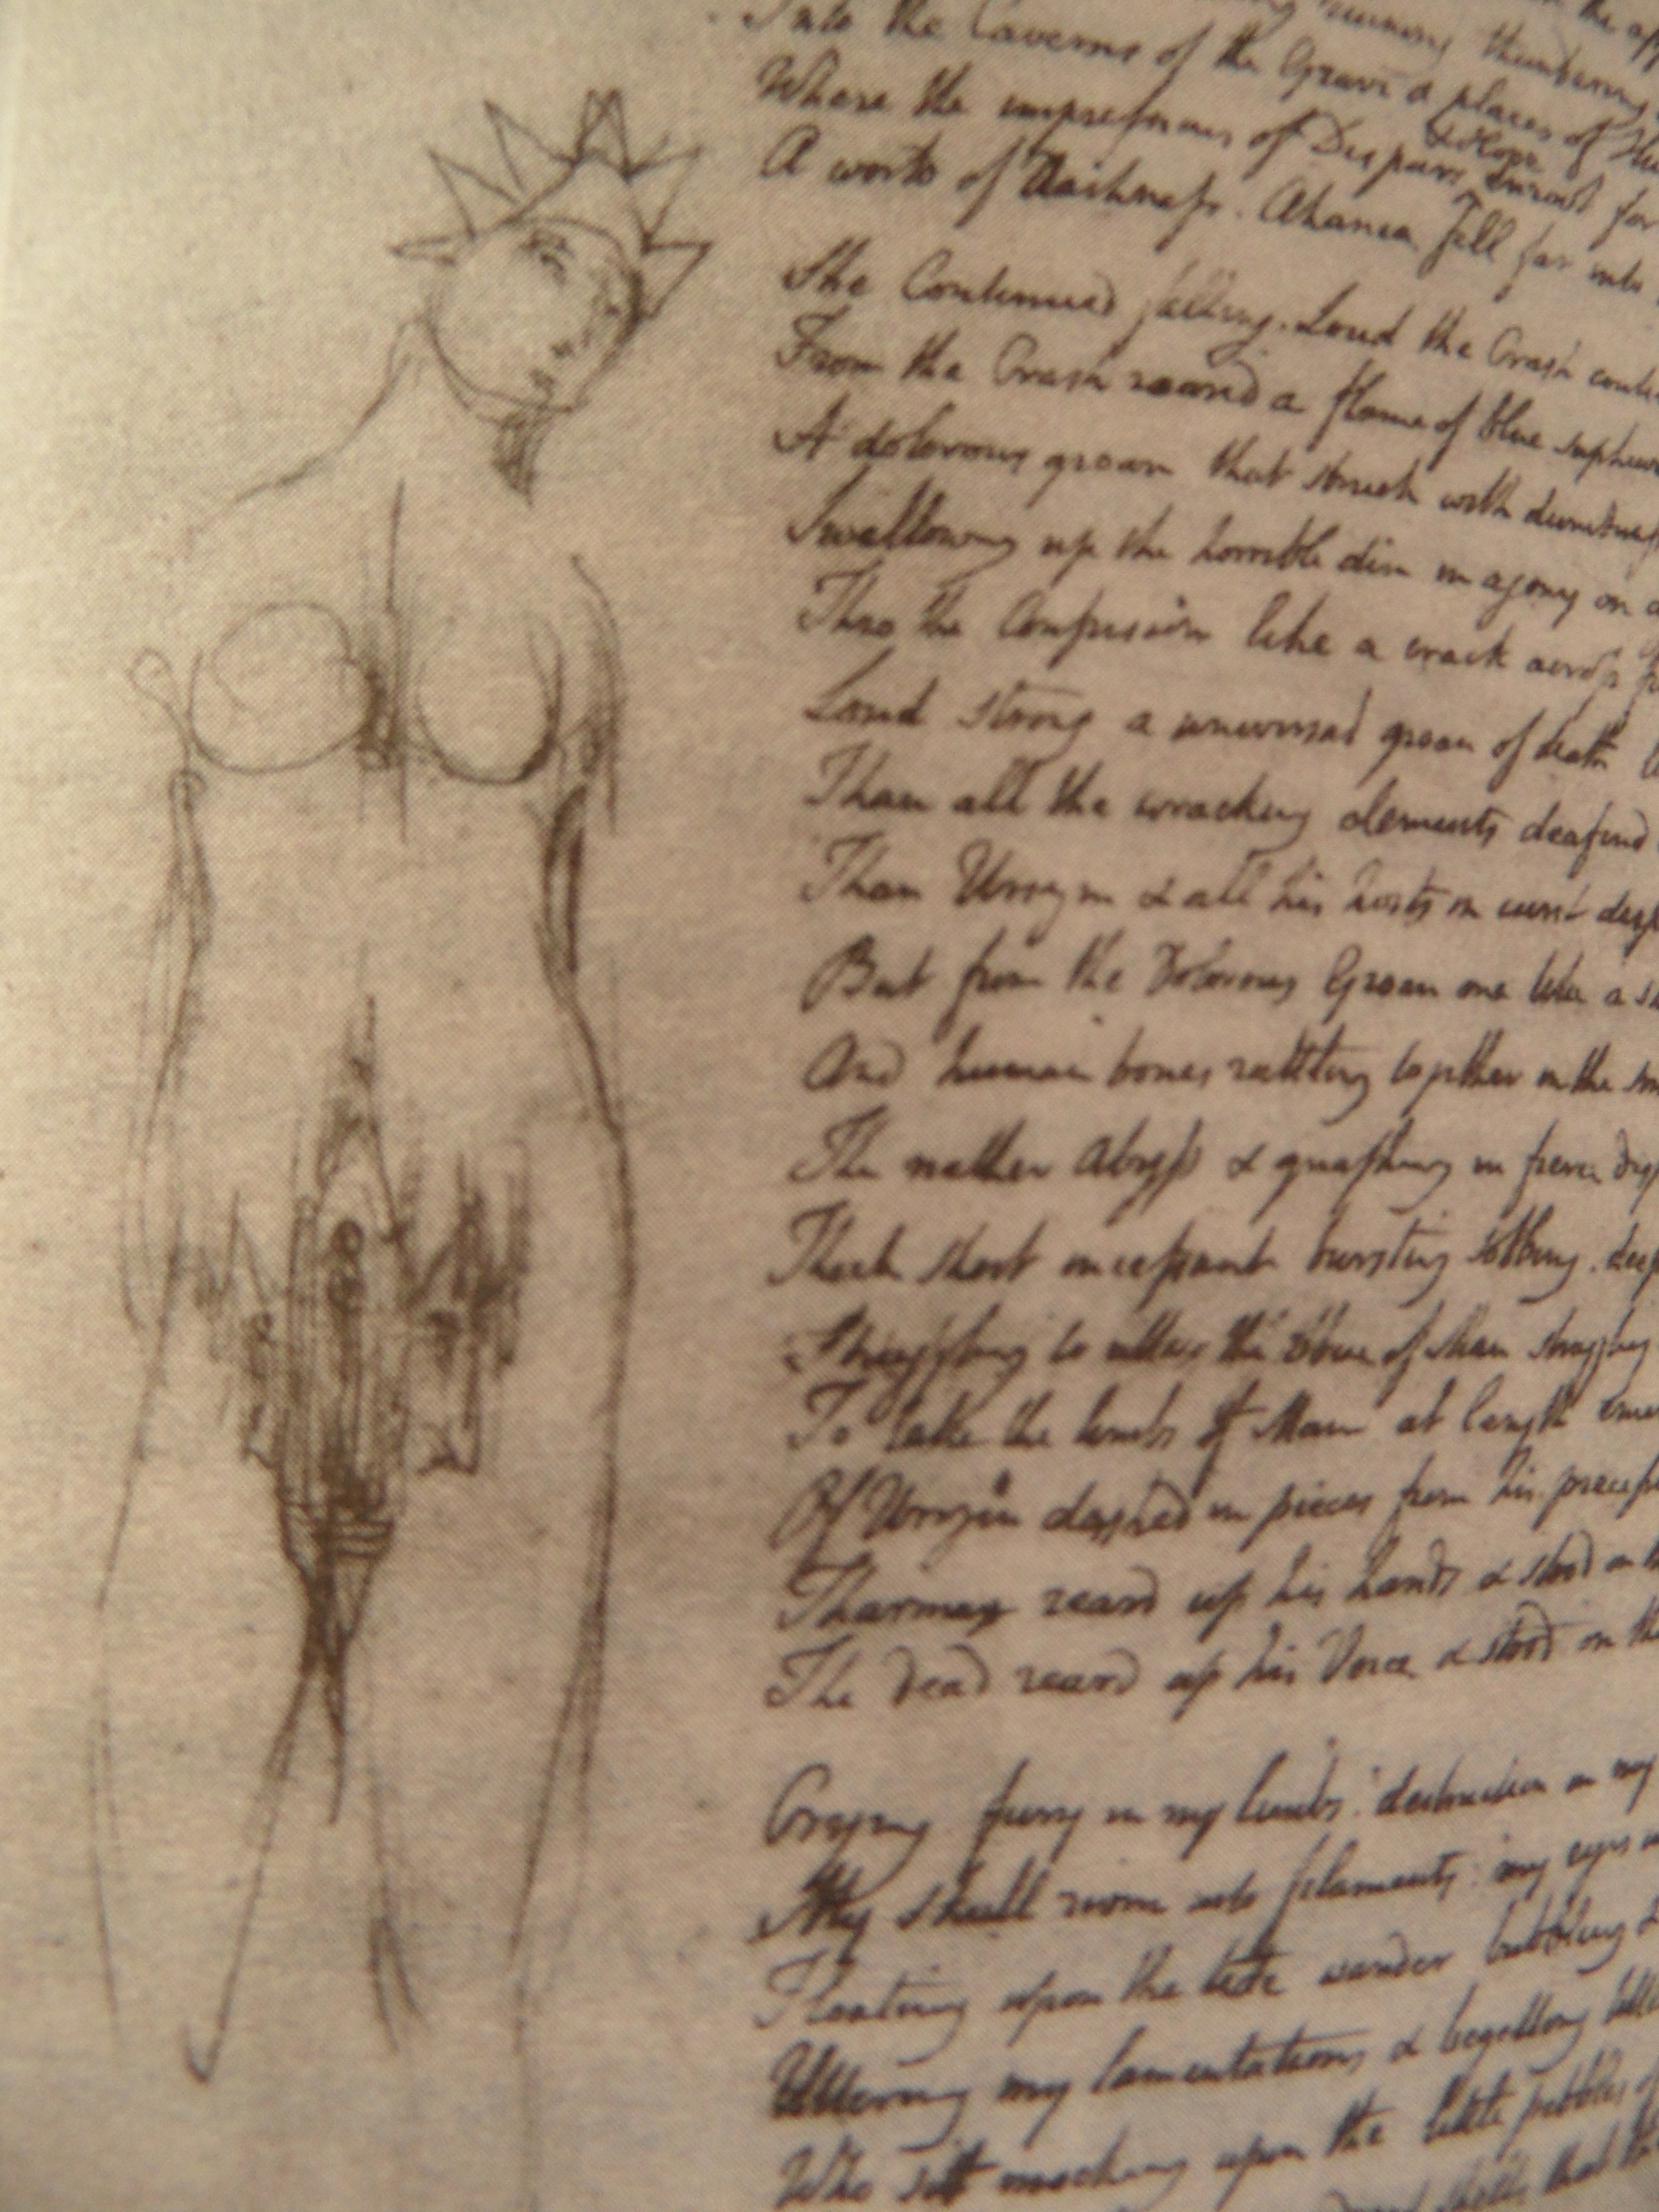 the
running thundering
Into the Caverns of the Grave & places of
Where the impressions of Despair & Hope enroot for
A world of Darkness. Ahania fell far into
She Continued falling. Loud the Crash
From the Crash roared a flame of blue sulphur
A dolorous groan that struck with
Swallowing up the horrible din in agony on
Thro the Confusion like a crack across
Loud strong a universal groan of death
Than all the wracking elements deafend
Than Urizen & all his hosts in curst
But from the Dolorous Groan one like a
And human bones rattling together in the
The nether Abyss & gnashing in fierce
Thick short incessant bursting sobbing. deep
Struggling to utter the Voice of Man struggling
To take the limbs of Man at length
Of Urizen dashed in pieces from his
Tharmas reard up his hands & stood on
The dead reard up his Voice & stood on
Crying fury in my limbs. destruction in my
My skull riven into filaments. my eyes
Floating upon the tide wander bubbling &
Uttering my lamentations & begetting
Who sit mocking upon the little pebbles of
shells that